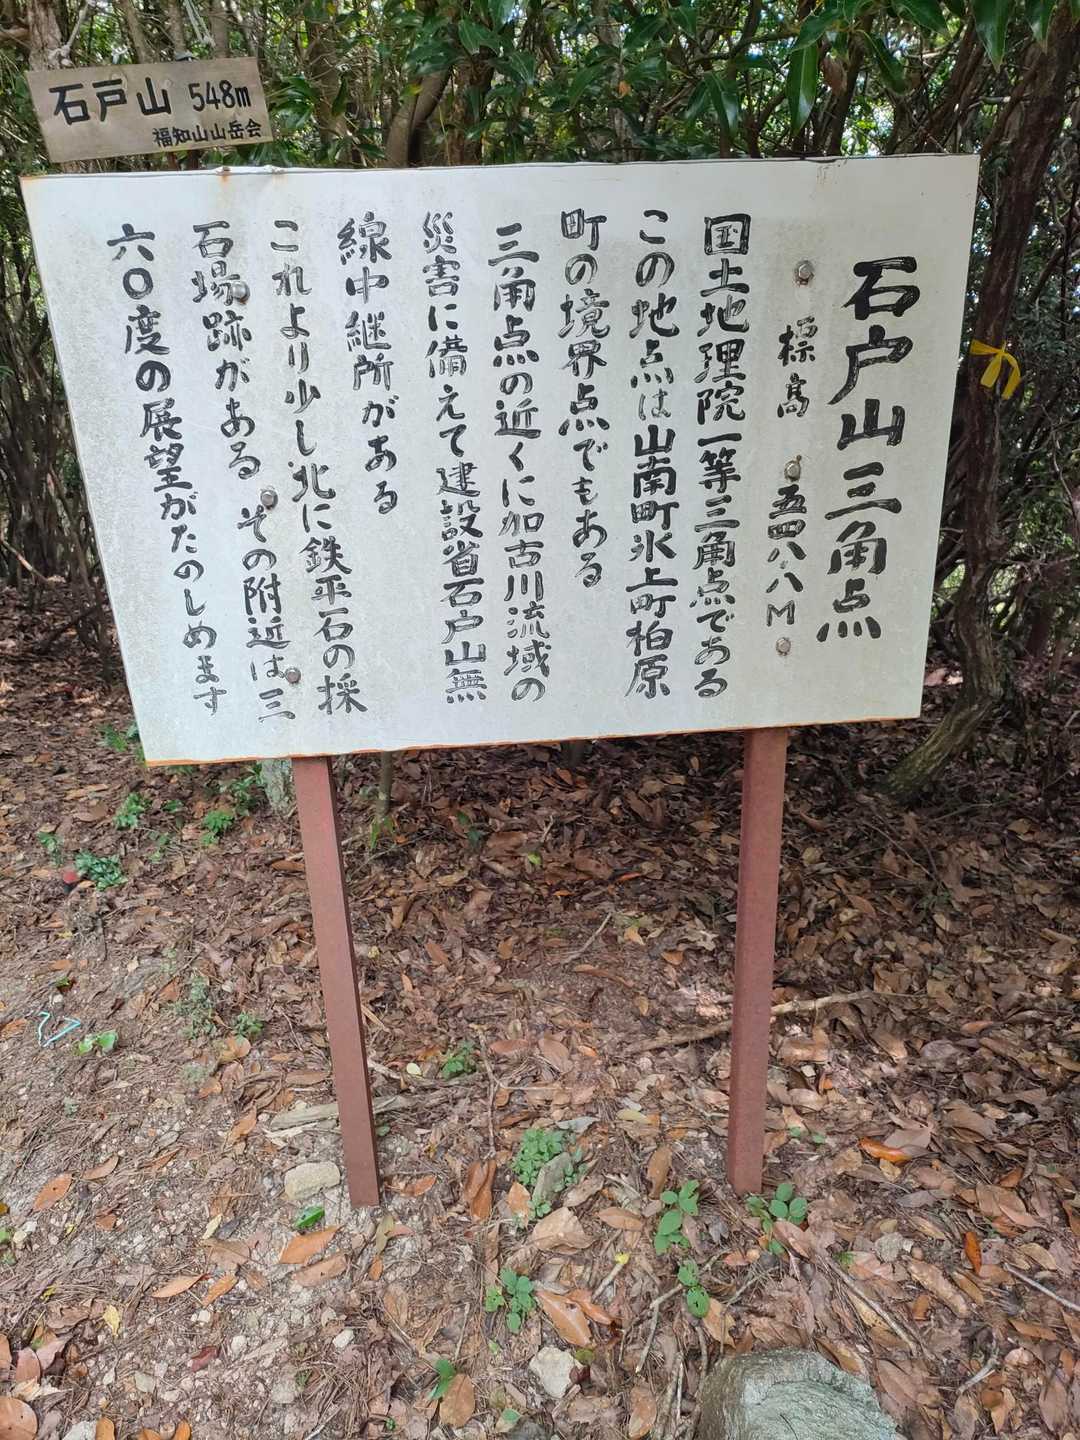 石戸山 548m
福知山山岳会
石戸山三角点
標高 五四八.八M
国土地理院一等三角点である
この地点は山南町氷上町柏原
町の境界点でもある
三角点の近くに加古川流域の
災害に備えて建設省石戸山無
線中継所がある
これより少し北に鉄平石の採
石場跡がある その附近は三
六〇度の展望がたのしめます